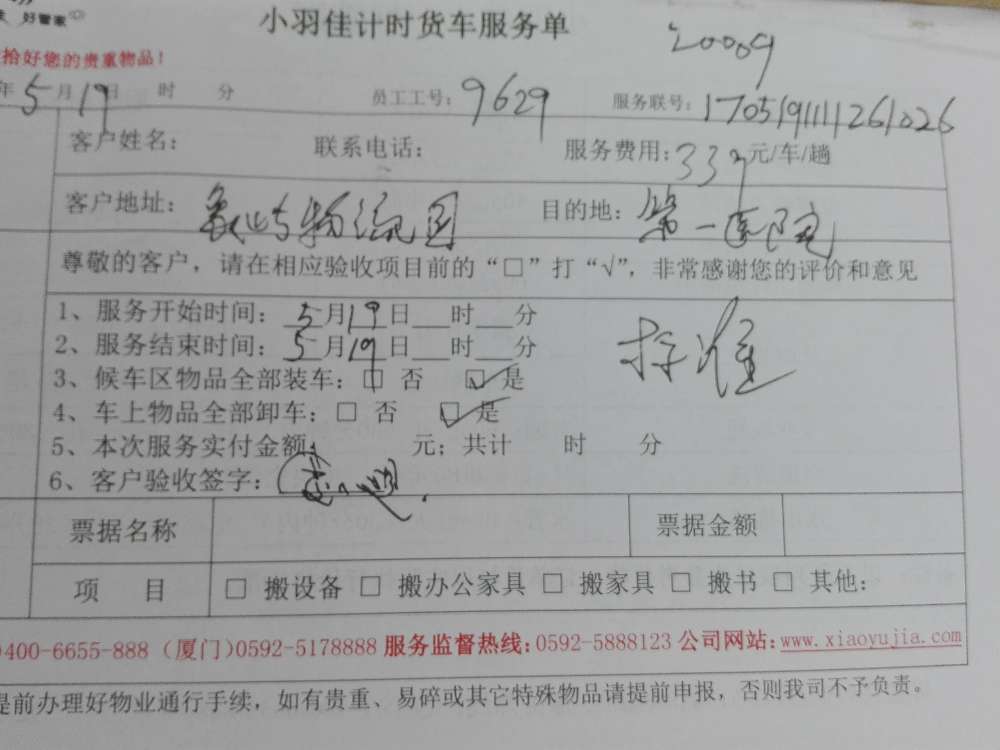 好管家
小羽佳计时货车服务单
20009
拾好您的贵重物品!
年5月19日 时 分 员工工号:9629 服务联号:1705191111261026
客户姓名: 联系电话: 服务费用:339元/车/趟
客户地址: 物流园 目的地:第一医院
尊敬的客户,请在相应验收项目前的“□”打“√”,非常感谢您的评价和意见
1、服务开始时间:5月19日___时___分
2、服务结束时间:5月19日___时___分
标准
3、候车区物品全部装车:□ 否 ☑ 是
4、车上物品全部卸车:□ 否 ☑ 是
5、本次服务实付金额: 元;共计 时 分
6、客户验收签字:
票据名称 票据金额
项 目 □ 搬设备 □ 搬办公家具 □ 搬家具 □ 搬书 □ 其他:
400-6655-888(厦门)0592-5178888 服务监督热线:0592-5888123 公司网站:www.xiaoyujia.com
提前办理好物业通行手续,如有贵重、易碎或其它特殊物品请提前申报,否则我司不予负责。